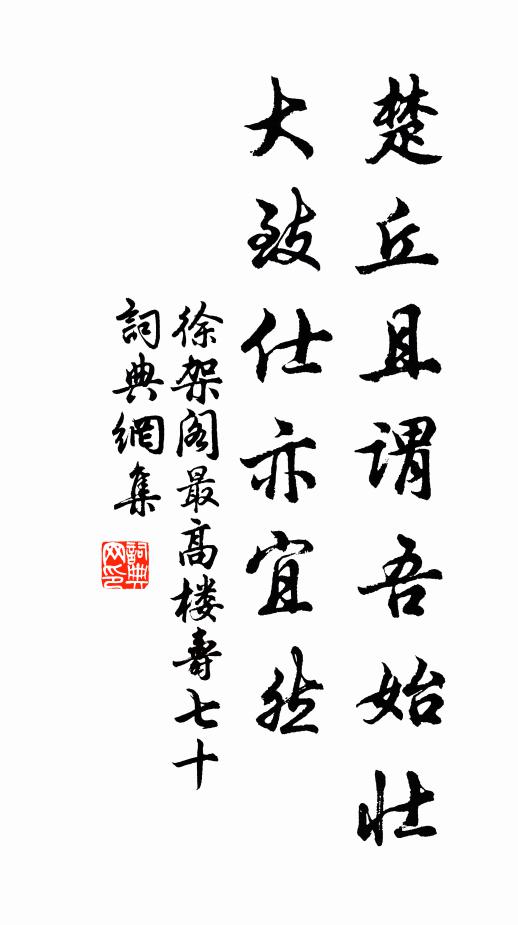 楚丘且謂吾始壮
大致仕亦宜然
徐架阁最高楼壽七十
詞典網集
詞典网印